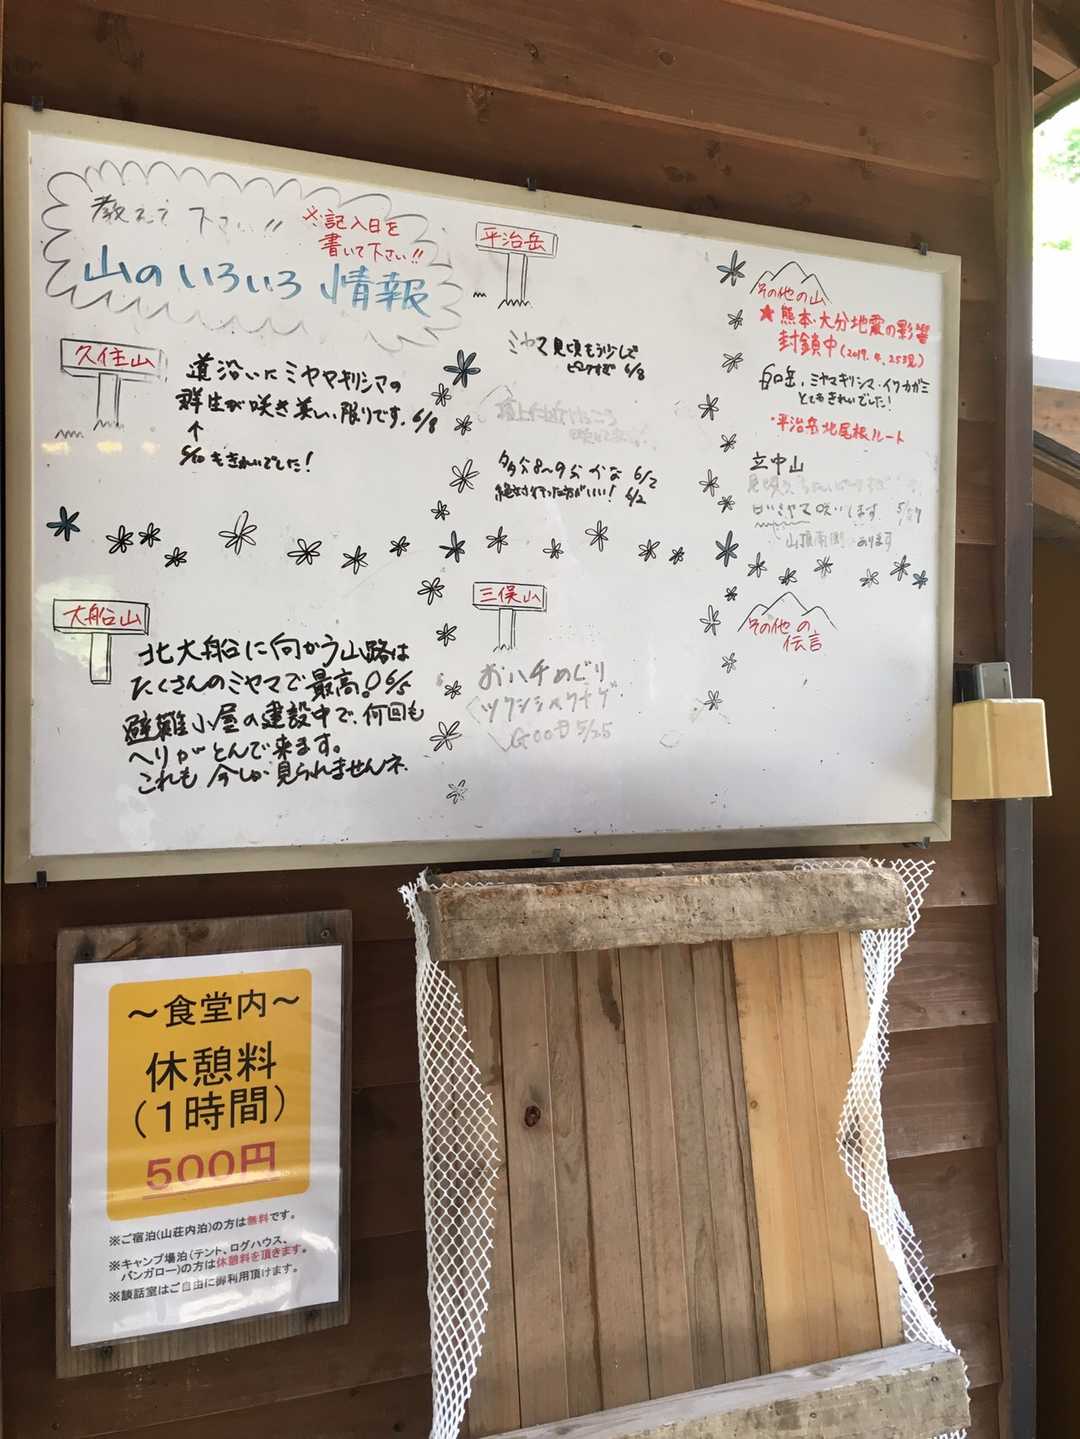 教えて下さい!!
※記入日を
書いて下さい!!
山のいろいろ情報
久住山
道沿いにミヤマキリシマの
群生が咲き美しい限りです。6/8
↑
5/10もきれいでした!
平治岳
ミヤマ見頃もう少しで
ピークすぎ 6/8
多分8〜9分かな 6/2
6/2
その他の山
★熊本・大分地震の影響
封鎖中(2017.4.25現)
白口岳、ミヤマキリシマ・イワカガミ
とてもきれいでした!
・平治岳北尾根ルート
立中山
ミヤマ咲いてます 5/27
山頂南側 あります
大船山
北大船に向かう山路は
たくさんのミヤマで最高。6/5
避難小屋の建設中で、何回も
ヘリがとんで来ます。
これも今しか見られませんネ.
三俣山
お八チめぐり
ツクシシャクナゲ
GOOD 5/25
その他の
伝言
〜食堂内〜
休憩料
(1時間)
500円
※ご宿泊(山荘内泊)の方は無料です。
※キャンプ場泊(テント、ログハウス、
バンガロー)の方は休憩料を頂きます。
※談話室はご自由に御利用頂けます。